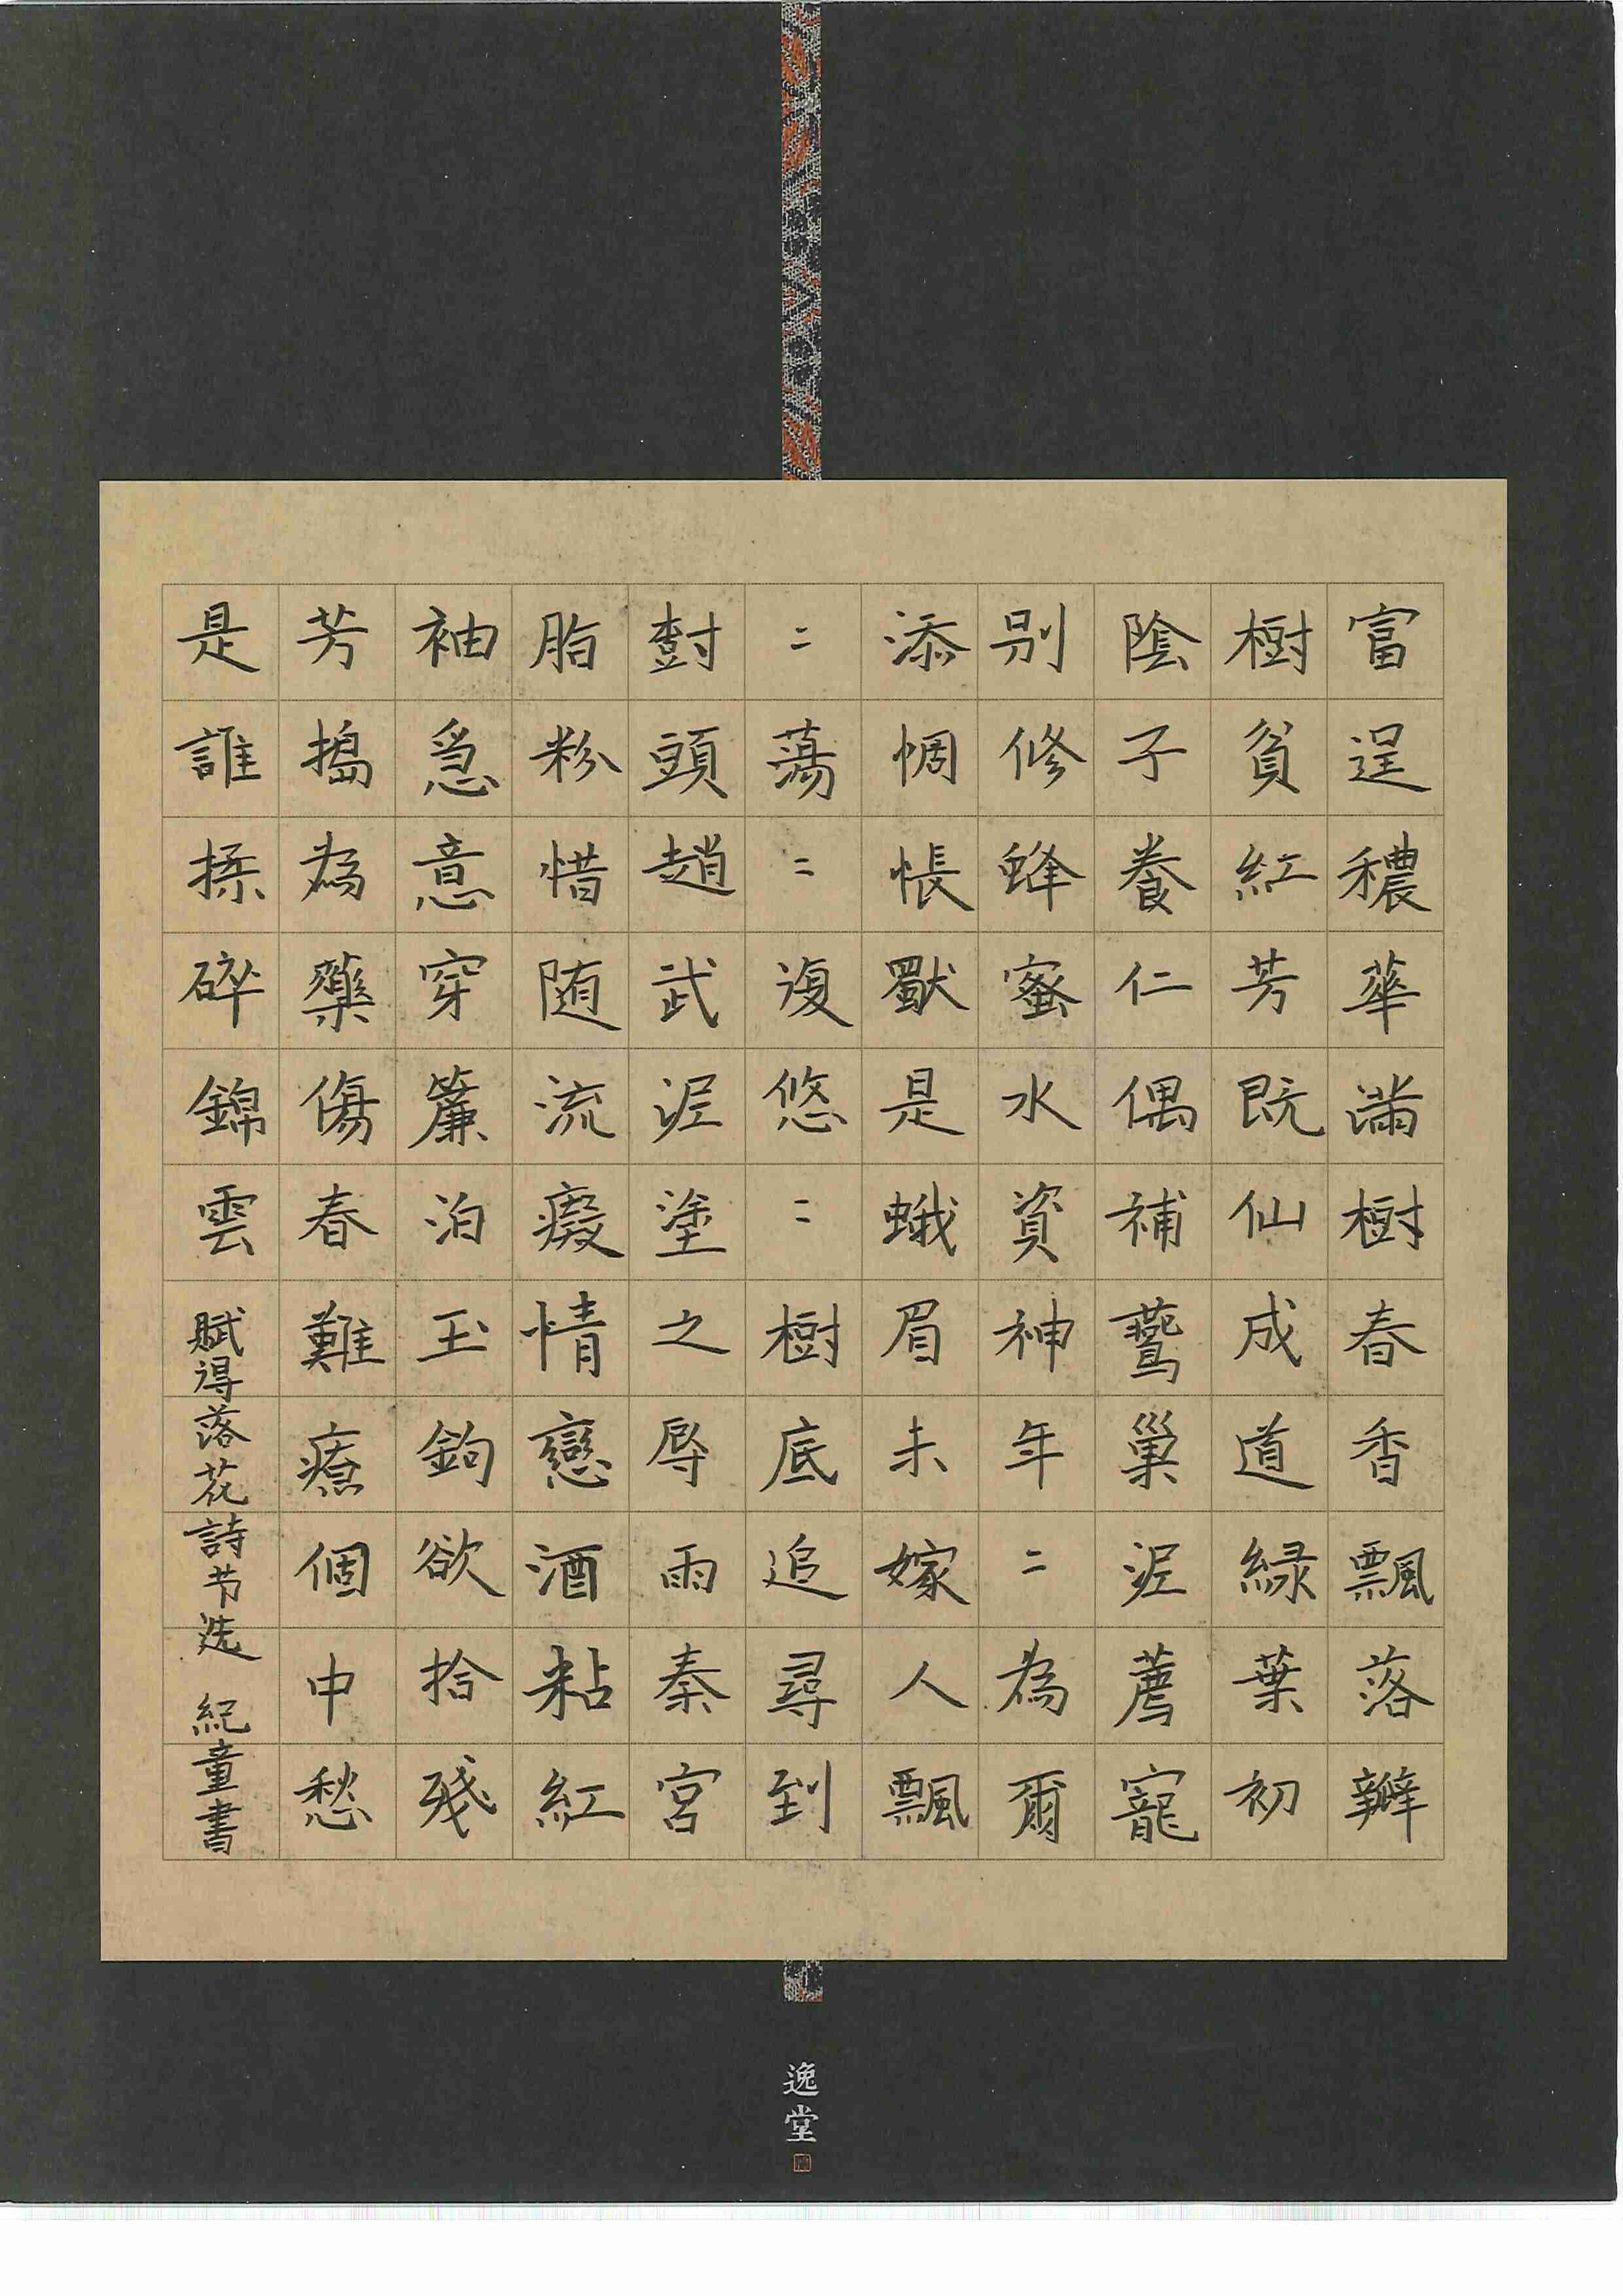 富逞穠華滿樹春香飄落瓣
樹貧紅芳既仙成道綠葉初
陰子養仁偶補鶯巢泥薦寵
別修蜂蜜水資神年〻為爾
添惆悵獸是蛾眉未嫁人飄
〻蕩〻復悠〻樹底追尋到
樹頭趙武泥塗之辱雨秦宮
脂粉惜随流癡情戀酒粘紅
袖急意穿簾泊玉鉤欲拾殘
芳搗為藥傷春難療個中愁
是誰揉碎錦雲
賦得落花詩节选 紀童書
逸堂